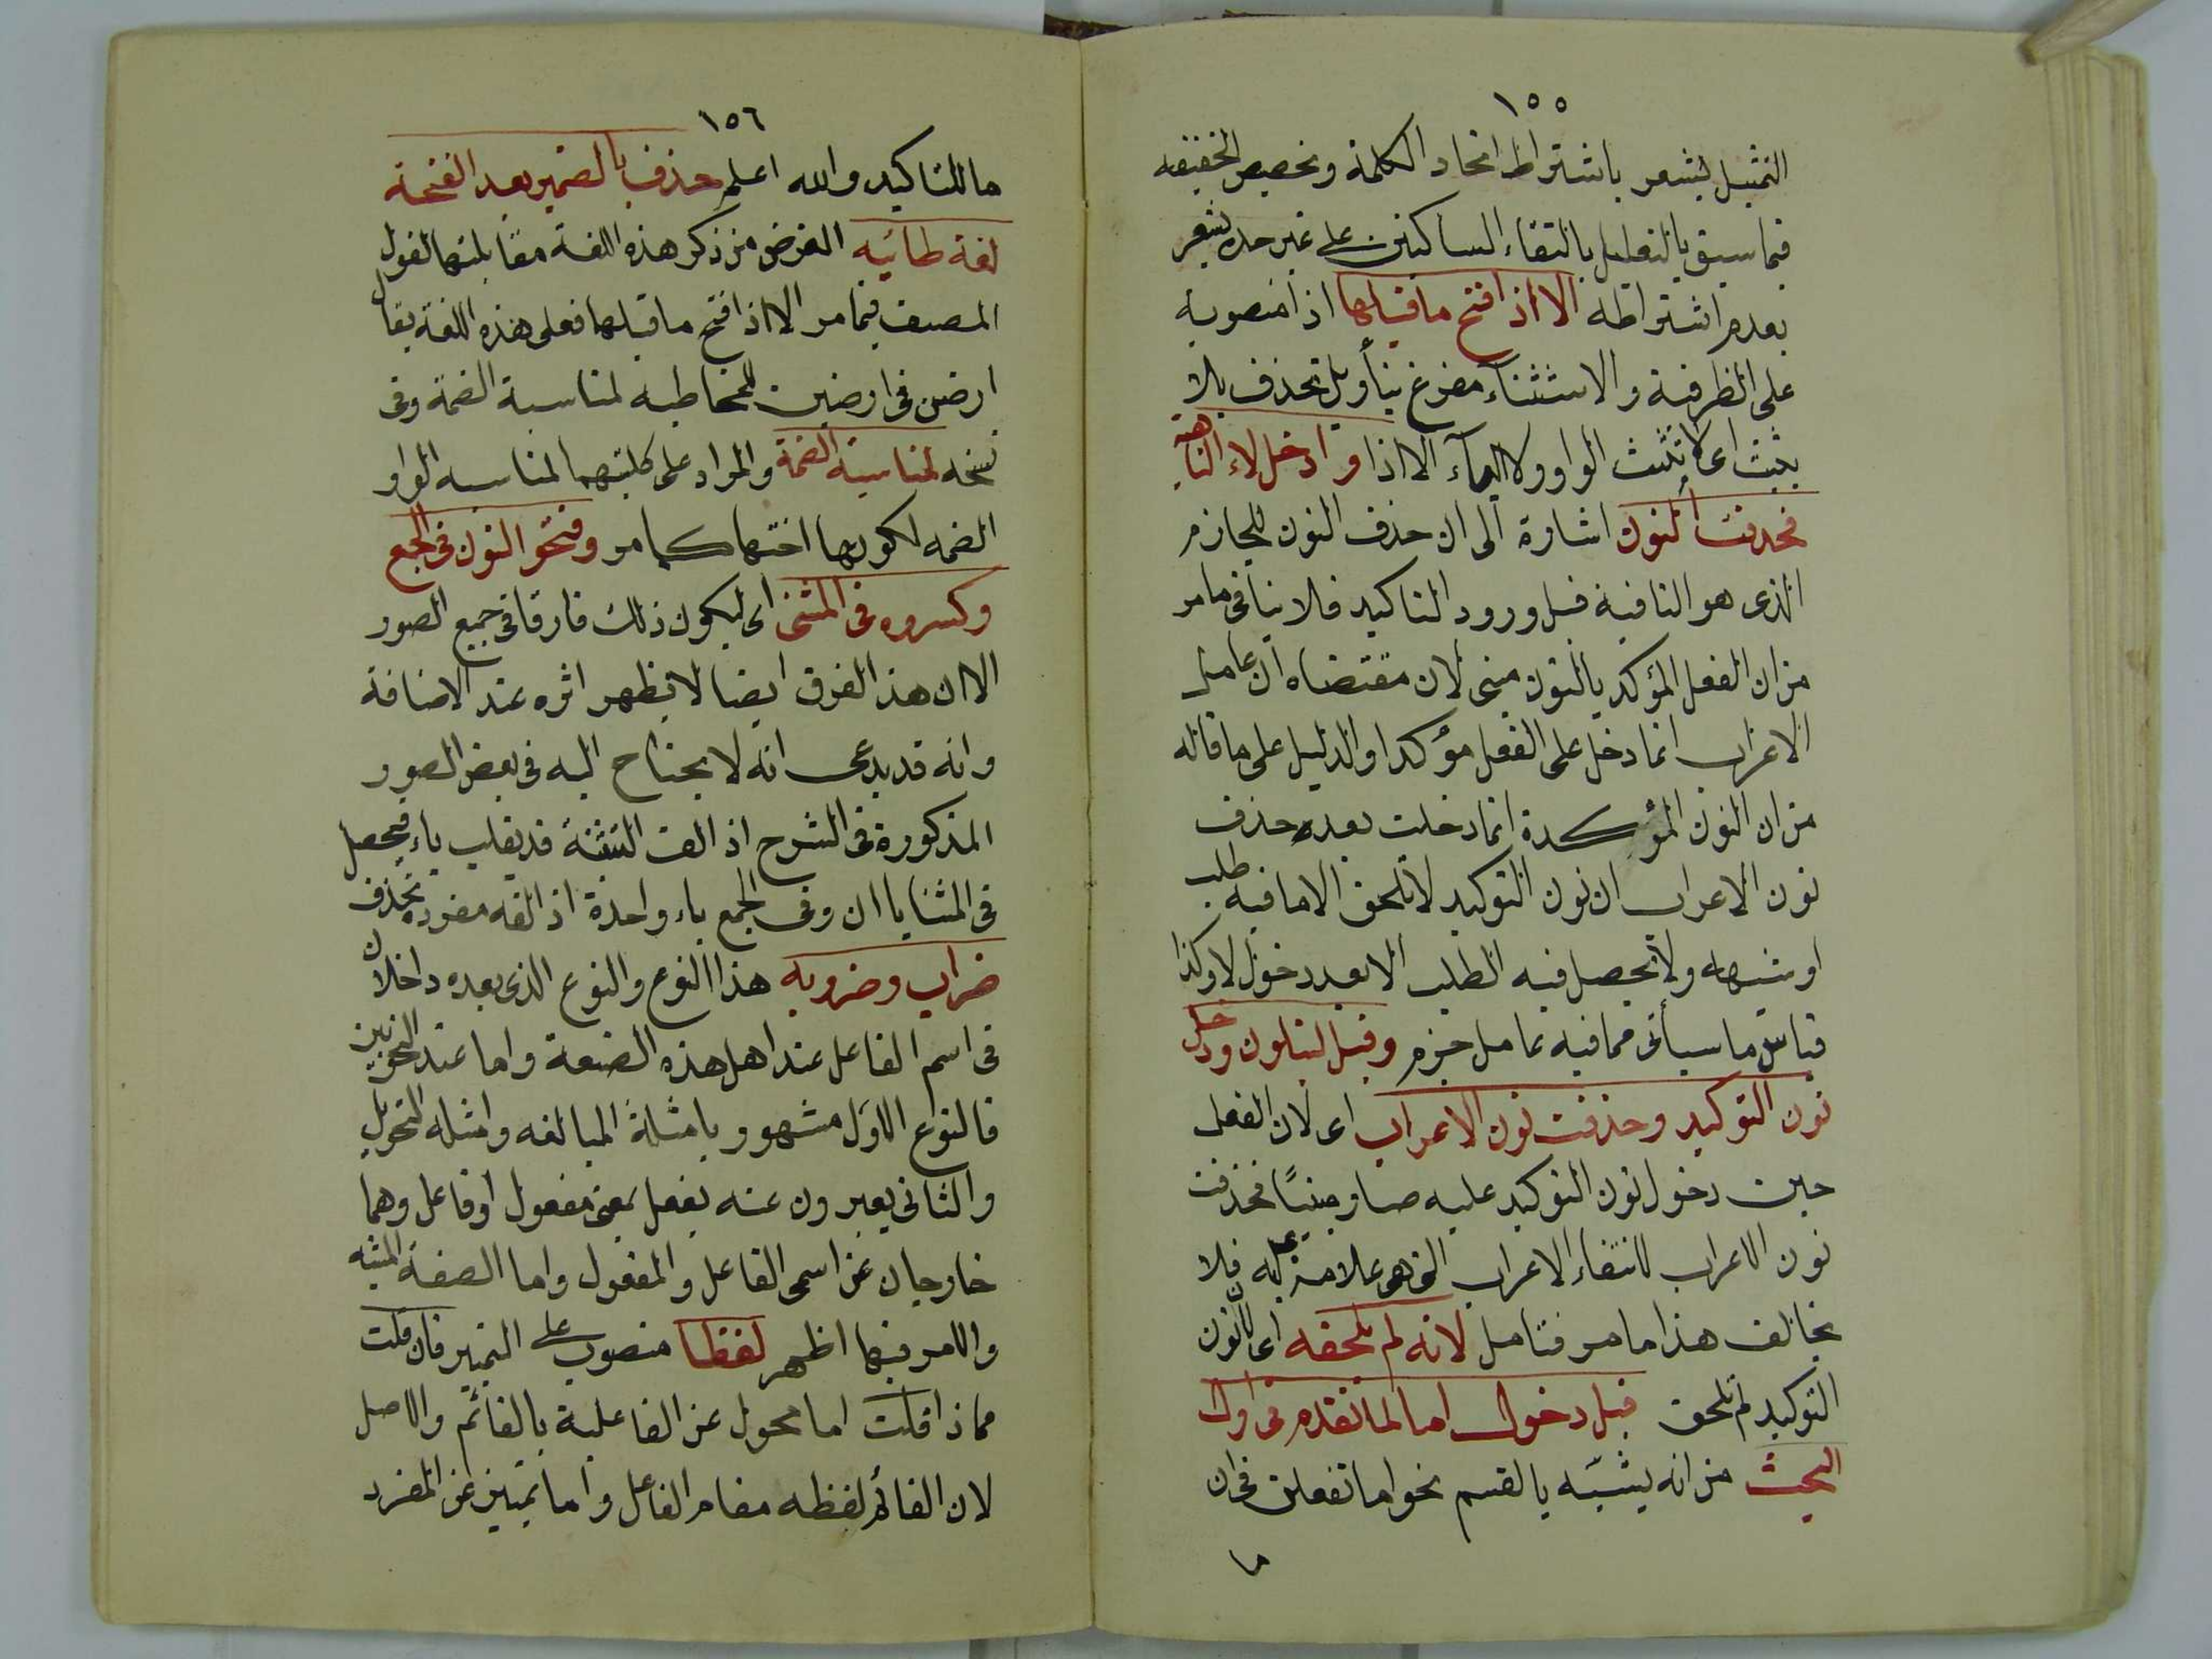 ١٥٥
التمثيل يشعر باشتراط اتحاد الكلمة وتخصيص الخفيفه
فيما سبق بالتعليل بالتقاء الساكنين على غير حده يشعر
بعدم اشتراطه الا اذا فتح ما قبلها اذا منصوبة
على الظرفية والاستثناء مفرغ بتأويل تحذف بلا
يثبت اى لا تثبت الواو ولا الياء الا اذا وادخل لاء الناهية
فحذفت النون اشارة الى ان حذف النون للجازم
الذى هو النافية قبل ورود التاكيد فلا ينافى ما مر
من ان الفعل المؤكد بالنون مبنى لان مقتضاه ان عامل
الاعراب انما دخل على الفعل مؤكدا والدليل على ما قاله
من ان النون المؤكدة انما دخلت بعده حذف
نون الاعراب ان نون التوكيد لا تلحق الا ما فيه طلب
او شبهه ولا يحصل فيه الطلب الا بعد دخول لا وكذا
قياس ما سيأتى مما فيه عامل جزم وقبل لتبلون ودخل
نون التوكيد وحذفت نون الاعراب اى لان الفعل
حين دخول نون التوكيد عليه صار مبنيًا فحذفت
نون الاعراب لانتفاء الاعراب التى هى علامة عليه فلا
يخالف هذا ما مر فتامل لانه لم تلحقه اى لان نون
التوكيد لم تلحق قبل دخول اما لما تقدم فى اول
البحث من انه يشبّه بالقسم نحو اما تفعلن فى ان
ما
١٥٦
ما للتاكيد والله اعلم حذف يا الضمير بعد الفتحة
لغة طائيه الغرض من ذكر هذه اللغة مقابلتها لقول
المصنف فيما مر الا اذا فتح ما قبلها فعلى هذه اللغة يقال
ارضن فى ارضين للمخاطبه لمناسبة الضمة وفى
نسخه لمناسبة الضمة والمراد على كلتيهما لمناسبه الواو
الضمه لكونها اختها كما مر وفتحو النون فى الجمع
وكسروه فى المثنى اى ليكون ذلك فارقا فى جميع الصور
الا ان هذا الفرق ايضا لا يظهر اثره عند الاضافة
وانه قد يدعى انه لا يحتاج اليه فى بعض الصور
المذكورة فى الشرح اذ الف التثنة قد يقلب ياء فيحصل
فى المثنايا ان وفى الجمع ياء واحدة اذ الفه مفرده تحذف
ضراب وضروبه هذا النوع والنوع الذى بعده داخلان
فى اسم الفاعل عند اهل هذه الصنعة واما عند النحويين
فالنوع الاول مشهور بامثلة المبالغه وامثله التحويل
والثانى يعبرون عنه بفعل بمعنى مفعول او فاعل وهما
خارجان عن اسمى الفاعل والمفعول واما الصفة المشبه
والامر فيها اظهر لفظا منصوب على التمييز فان قلت
مماذا قلت اما محول عن الفاعلية بالقائم والاصل
لان القائم لفظه مقام الفاعل واما تمييز عن المفرد